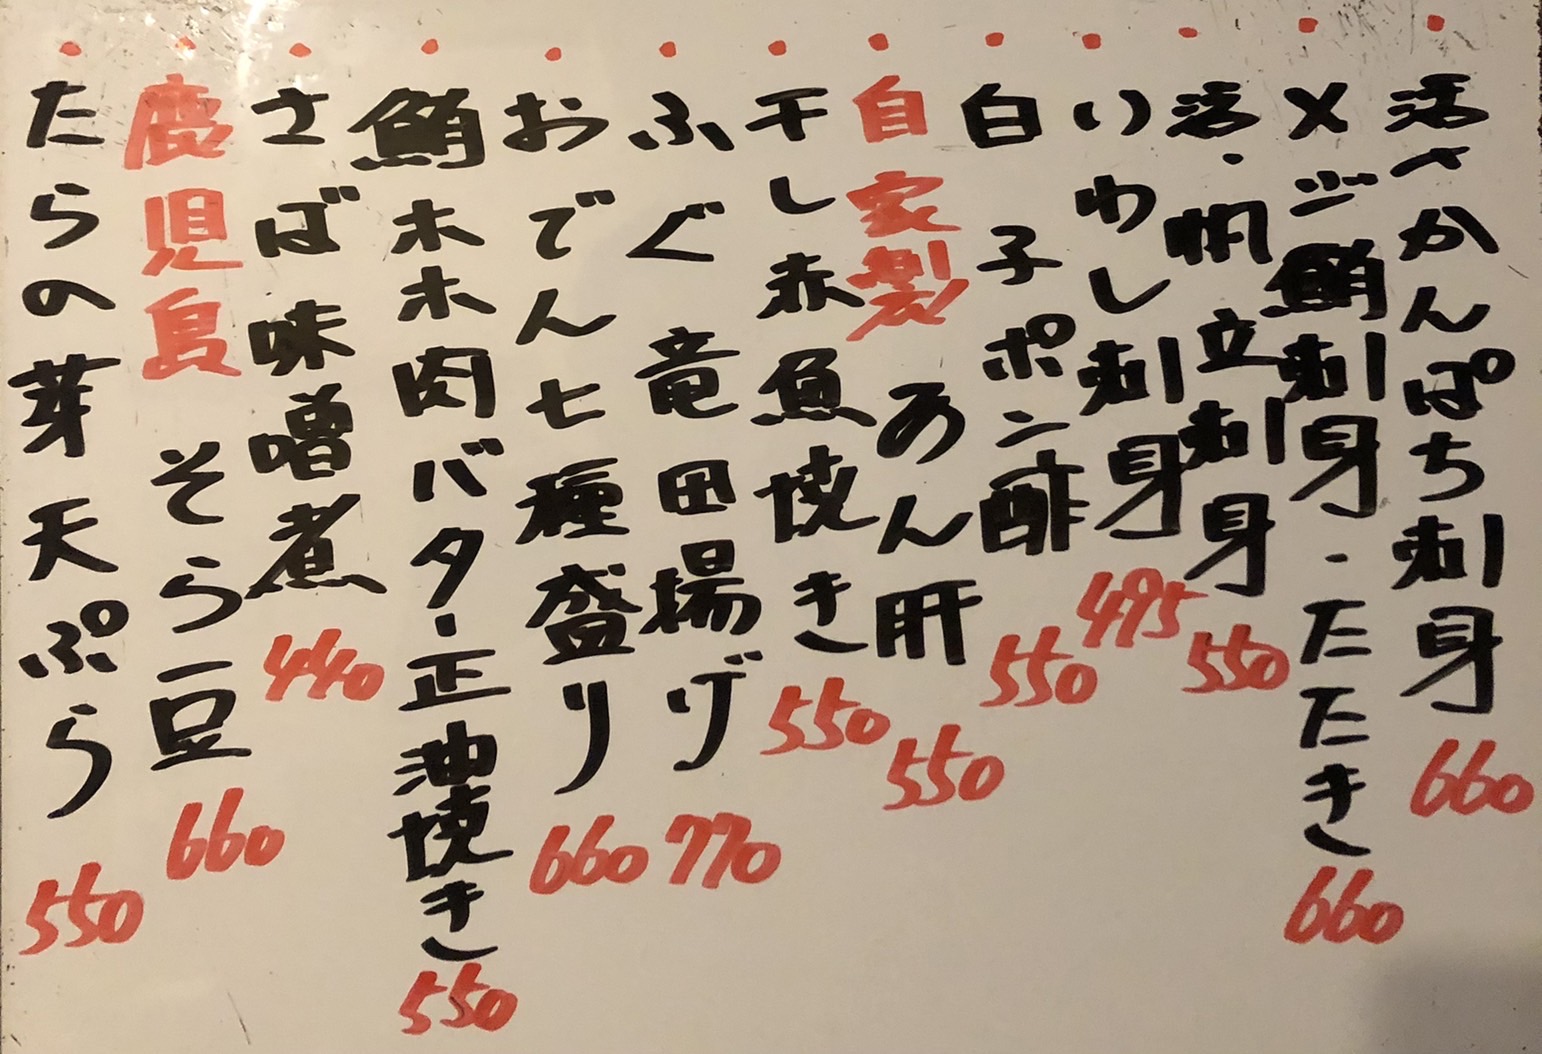 ・活〆かんぱち刺身 660
・メジ鮪刺身・たたき 660
・活・帆立刺身 550
・いわし刺身 495
・白子ポン酢 550
・自家製あん肝 550
・干し赤魚焼き 550
・ふぐ竜田揚げ 770
・おでん七種盛り 660
・鮪ホホ肉バター正油焼き 550
・さば味噌煮 440
・鹿児島そら豆 660
・たらの芽天ぷら 550